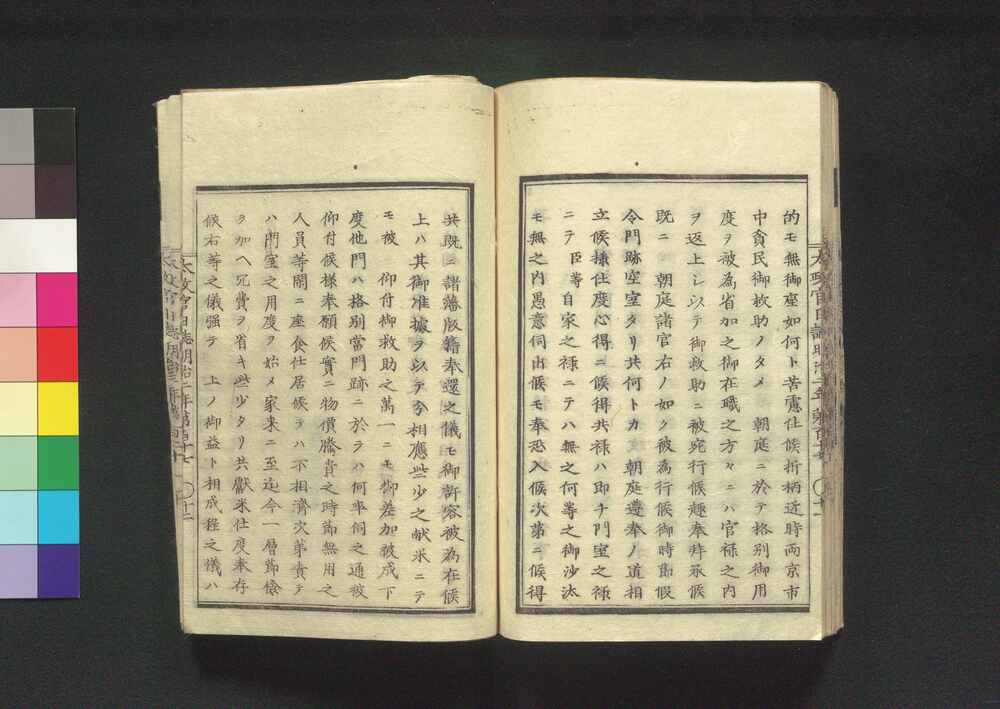 的モ無御座如何ト苦慮仕候折柄近時両京市
中貪民御救助ノタメ　朝庭ニ於テ格别御用
度ヲ被為省加之御在職之方々ニハ官禄之内
ヲ返上シ以テ御救助ニ被宛行候趣奉拜承候
既ニ　朝庭諸官右ノ如ク被為行候御時節假
令門跡空室タリ共何トカ　朝庭遵奉ノ道相
立候様仕度心得ニ候得共禄ハ即チ門室之禄
ニテ臣等自家之禄ニテハ無之何等之御沙汰
モ無之内愚意伺出候モ奉恐入候次第ニ候得
共既ニ諸藩版籍奉還之儀モ御許容被為在候
上ハ其御准據ヲ以テ今相應些少之献米ニテ
モ被　仰付御救助之萬一ニモ御差加被成下
度他門ハ格别當門跡ニ於テハ何卒伺之通被
仰付候様奉願候實ニ物價騰貴之時節無用之
人員等閑ニ座食仕居候テハ不相濟次第責テ
ハ門室之用度ヲ始メ家来ニ至迄今一層節儉
ヲ加ヘ冗費ヲ省キ些少タリ共獻米仕度奉存
候右等之儀强テ　上ノ御益ト相成程之儀ハ
太政官日誌明治二年第百十七
〇十一
太政官日誌明治二年第百十七
〇十二